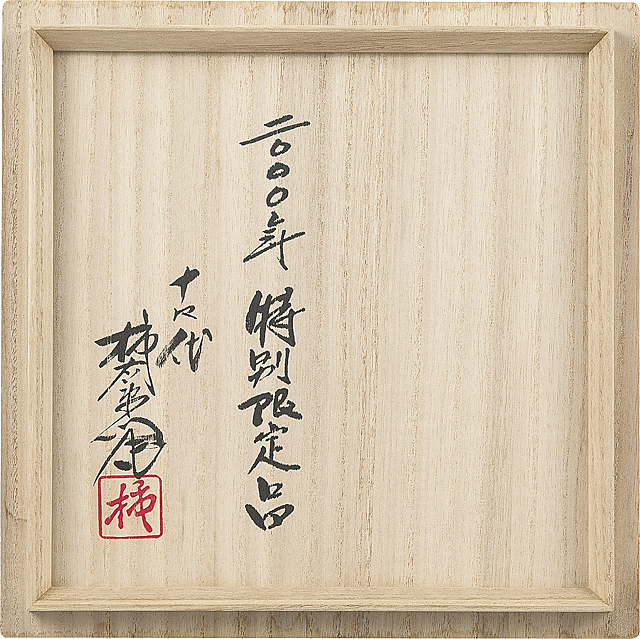 二〇〇〇年 特別限定品
十四代
柿右衛門
柿